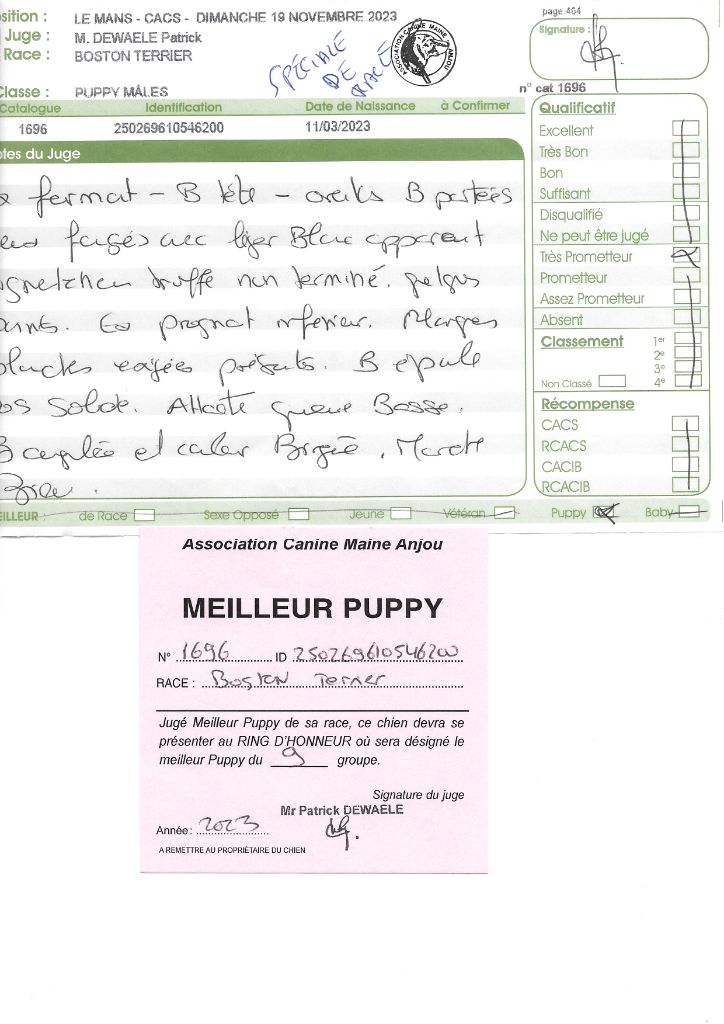 page 464
osition : LE MANS - CACS - DIMANCHE 19 NOVEMBRE 2023
Juge : M. DEWAELE Patrick
Race : BOSTON TERRIER
SPÉCIALE DE RACE
ASSOCIATION CANINE MAINE ANJOU
Signature :
Classe : PUPPY MÂLES
n° cat 1696
Catalogue Identification Date de Naissance à Confirmer
1696 250269610546200 11/03/2023
otes du Juge
Qualificatif
Excellent
Très Bon
Bon
Suffisant
Disqualifié
Ne peut être jugé
Très Prometteur
Prometteur
Assez Prometteur
Absent
Classement 1er
2e
3e
Non Classé 4e
Récompense
CACS
RCACS
CACIB
RCACIB
format - B tête - oreilles B portées
avec léger Blanc apparent
truffe non terminé.
prognat inférieur.
présents. B épaule
Solide. Attache queue Basse.
B et couleur Bringée. Marche
EILLEUR : de Race Sexe Opposé Jeune Vétéran Puppy Baby
Association Canine Maine Anjou
MEILLEUR PUPPY
N° 1696 ID 250269610546200
RACE : Boston Terrier
Jugé Meilleur Puppy de sa race, ce chien devra se
présenter au RING D'HONNEUR où sera désigné le
meilleur Puppy du 9 groupe.
Signature du juge
Mr Patrick DEWAELE
Année : 2023
A REMETTRE AU PROPRIÉTAIRE DU CHIEN